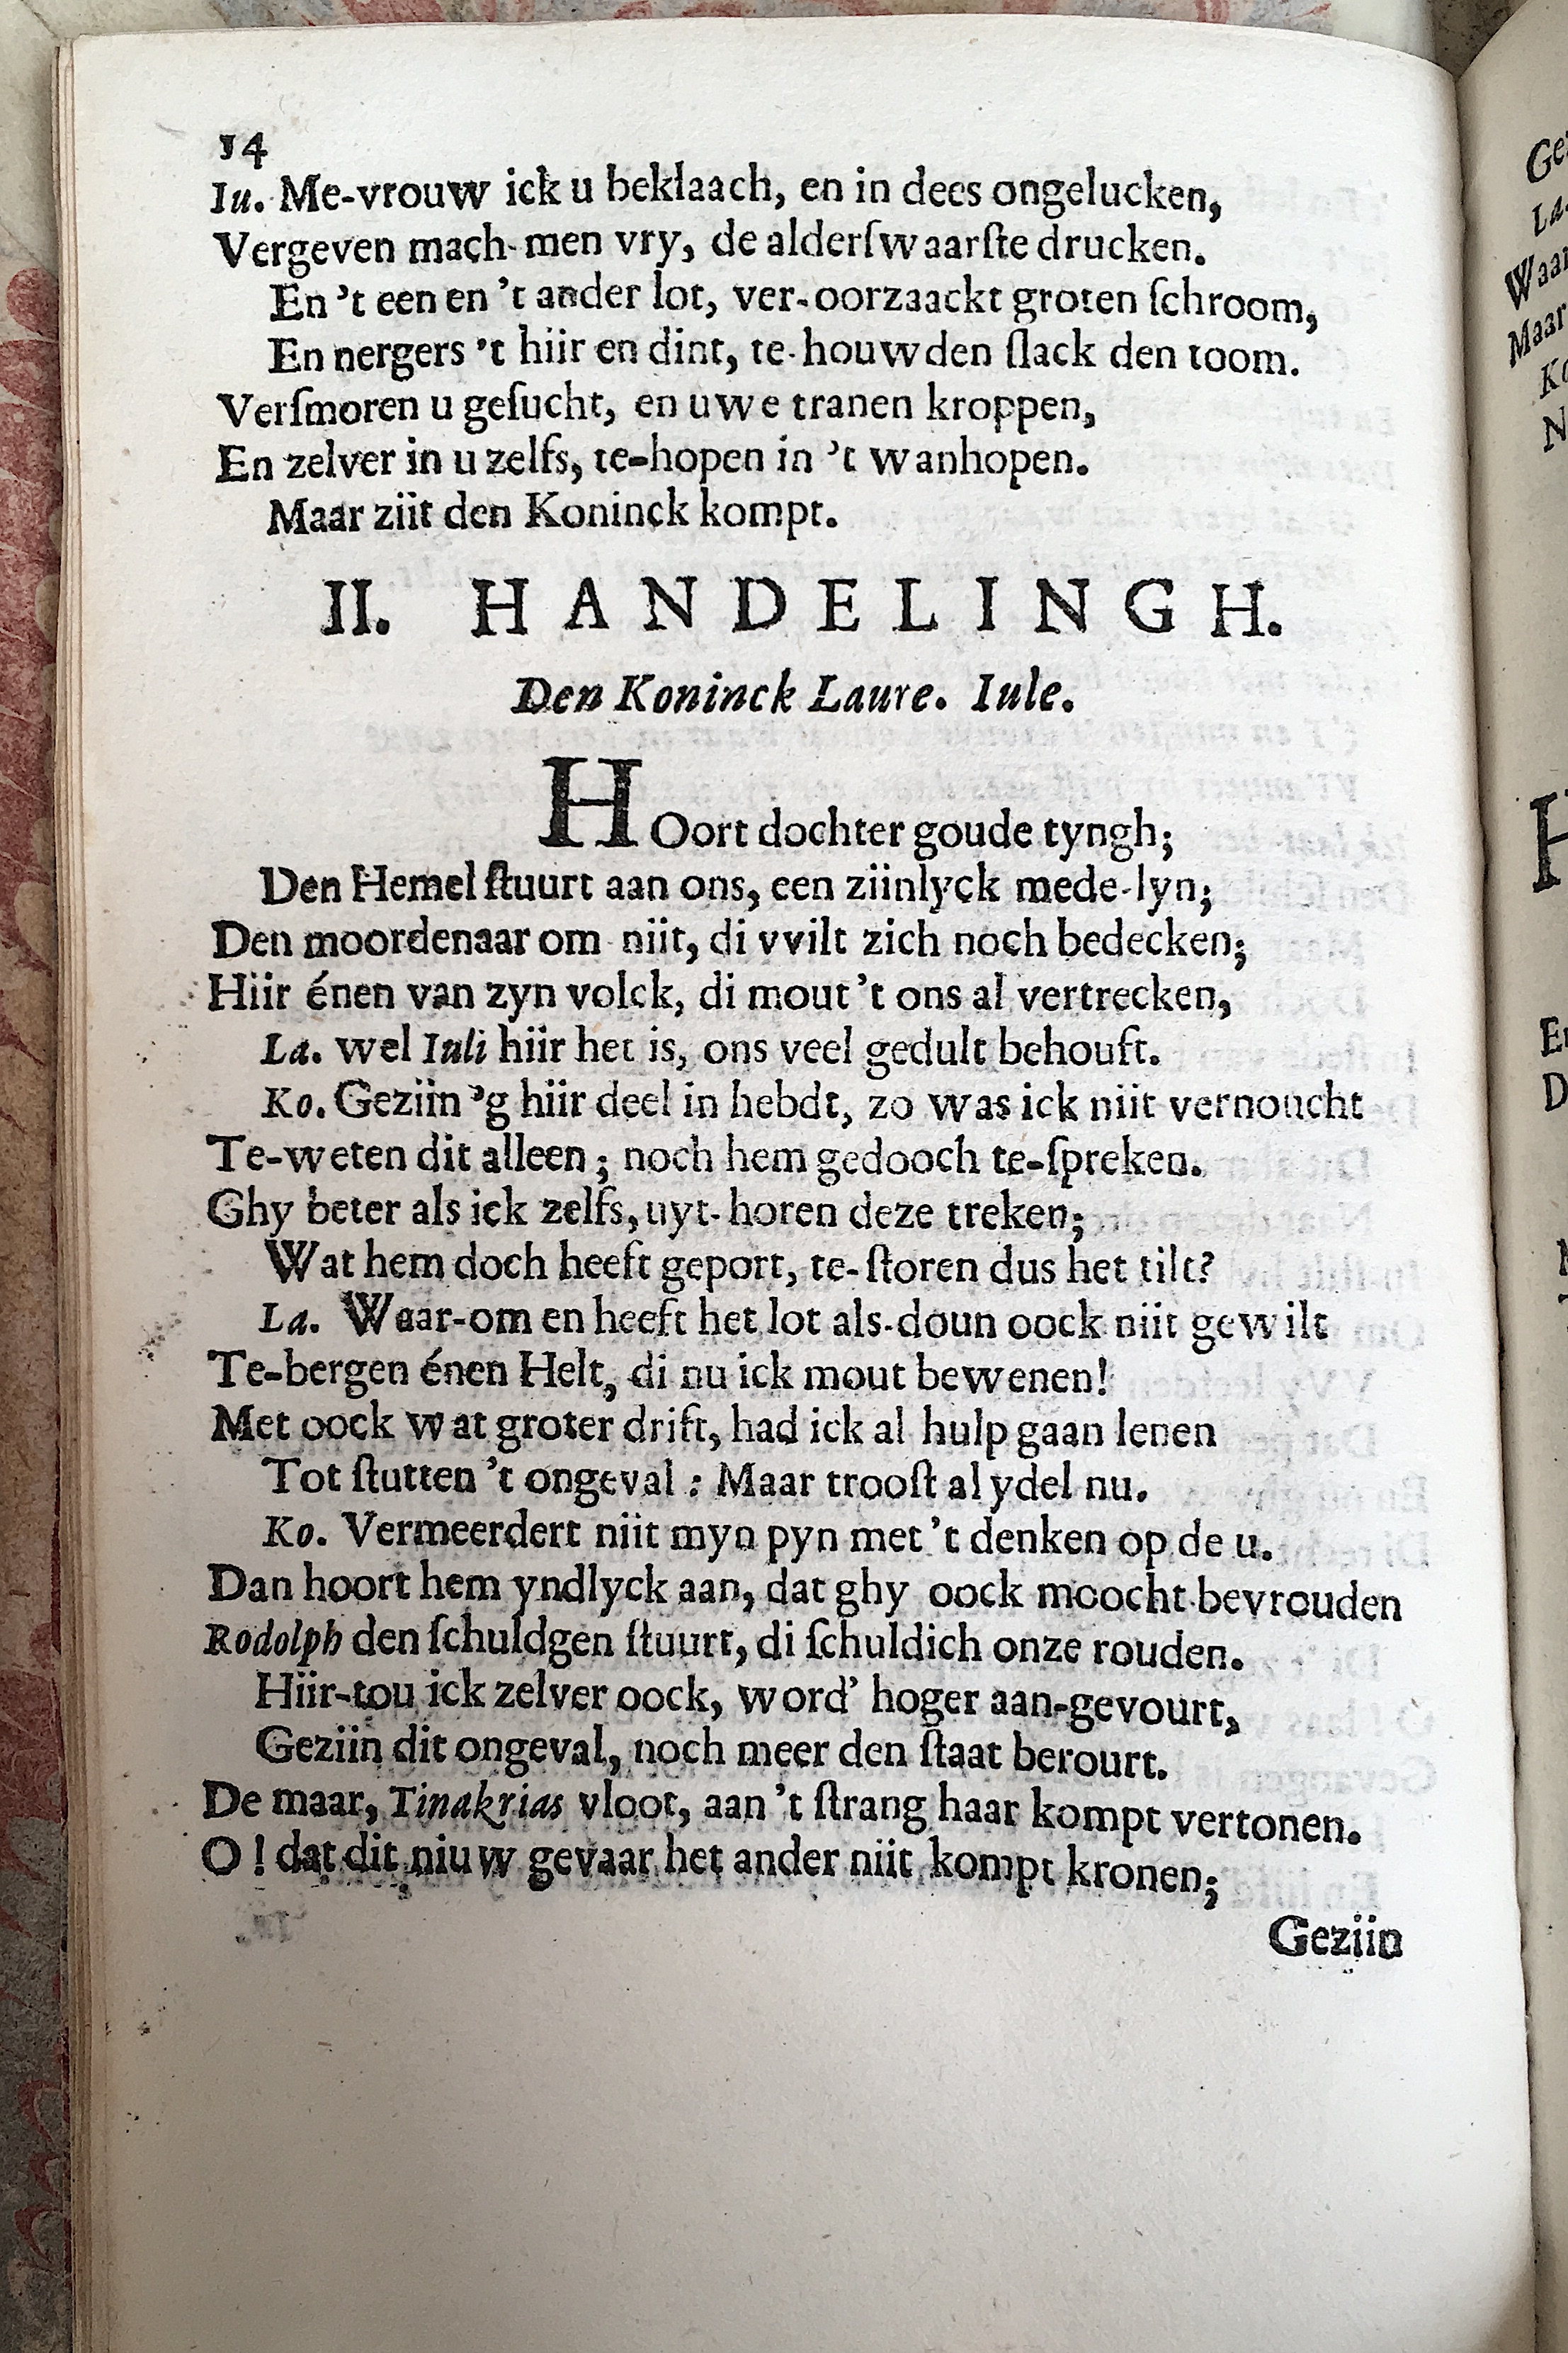 14
Iu. Me-vrouw ick u beklaach, en in dees ongelucken,
Vergeven mach-men vry, de alderſwaarſte drucken.
En 't een en 't ander lot, ver-oorzaackt groten ſchroom,
En nergers 't hiir en dint, te-houwden ſlack den toom.
Verſmoren u geſucht, en uwe tranen kroppen,
En zelver in u zelfs, te-hopen in 't wanhopen.
Maar ziit den Koninck kompt.
II. HANDELINGH.
Den Koninck Laure. Iule.
HOort dochter goude tyngh;
Den Hemel ſtuurt aan ons, een ziinlyck mede-lyn;
Den moordenaar om niit, di vvilt zich noch bedecken;
Hiir énen van zyn volck, di mout 't ons al vertrecken,
La. wel Iuli hiir het is, ons veel gedult behouft.
Ko. Geziin 'g hiir deel in hebdt, zo was ick niit vernoucht
Te-weten dit alleen; noch hem gedooch te-ſpreken.
Ghy beter als ick zelfs, uyt-horen deze treken;
Wat hem doch heeft geport, te-ſtoren dus het tilt?
La. Waar-om en heeft het lot als-doun oock niit gewilt
Te-bergen énen Helt, di nu ick mout bewenen!
Met oock wat groter drift, had ick al hulp gaan lenen
Tot ſtutten 't ongeval: Maar trooſt al ydel nu.
Ko. Vermeerdert niit myn pyn met 't denken op de u.
Dan hoort hem yndlyck aan, dat ghy oock moocht bevrouden
Rodolph den ſchuldgen ſtuurt, di ſchuldich onze rouden.
Hiir-tou ick zelver oock, word' hoger aan-gevourt,
Geziin dit ongeval, noch meer den ſtaat berourt.
De maar, Tinakrias vloot, aan 't ſtrang haar kompt vertonen.
O! dat dit niuw gevaar het ander niit kompt kronen;
Geziin